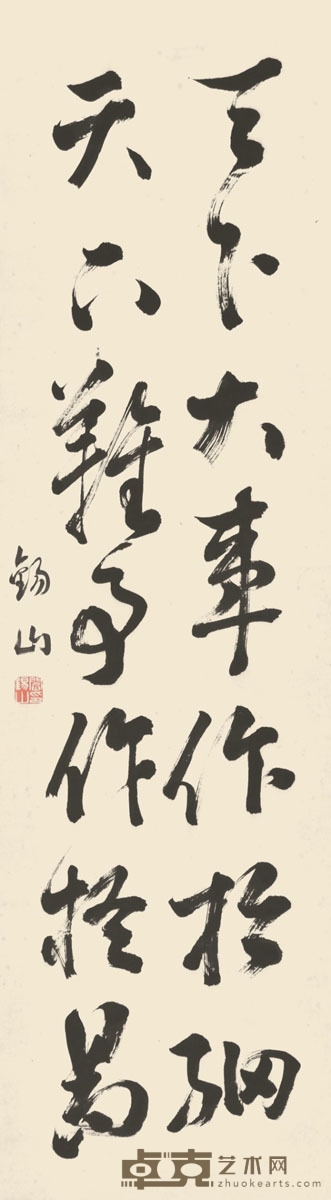 天下大事作於細
天下難事作於易
錫山
卓克艺术网
zhuokearts.com